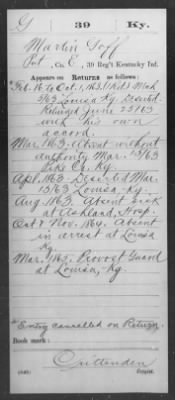 G | 39 | Ky.
Martin Goff
Pvt., Co. E, 39 Reg't Kentucky Inf.
Appears on Returns as follows:
*Feb. 16 to Oct. 1, 1863.
5/63 Louisa Ky. Deserted.
Returned June 25/63
with his own
accord.
Mar. 1863. Absent without
authority Mar. 15/63
Pike Co. Ky.
Apl. 1863 Deserted Mar.
15/63 Louisa, Ky.
Aug. 1863. Absent sick
at Ashland, Hosp.
Oct & Nov. 1864. Absent
in arrest at Louisa
Ky.
Mar. 1865. Provost Guard
at Louisa, Ky.
*Entry cancelled on Return.
Book mark:
Crittenden
Copyist.